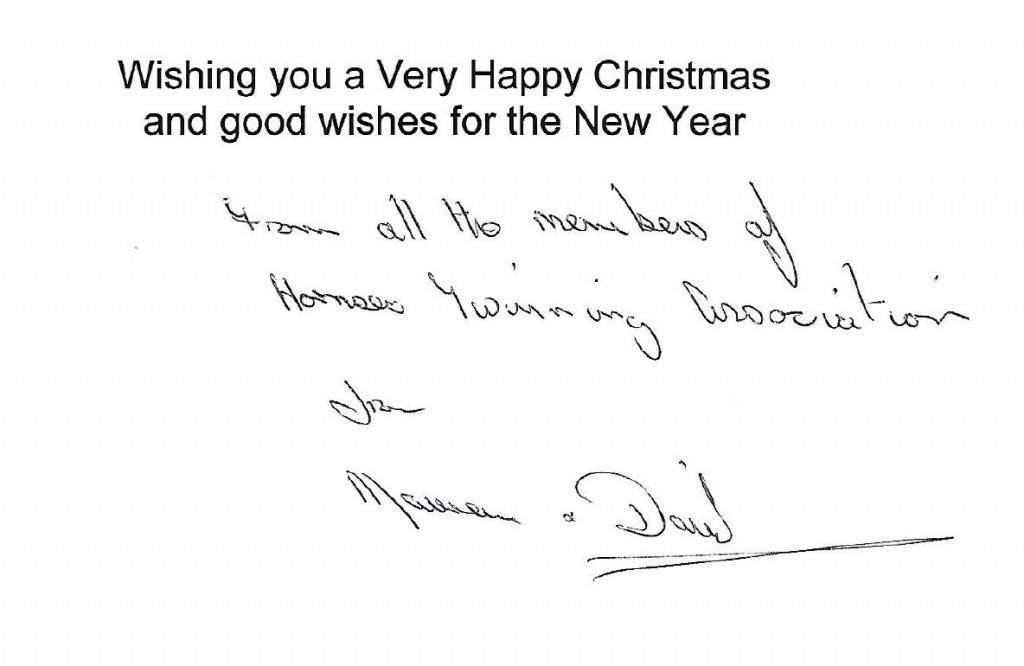 Wishing you a Very Happy Christmas
and good wishes for the New Year
From all the members of
Hornsea Twinning Association
Maureen & David